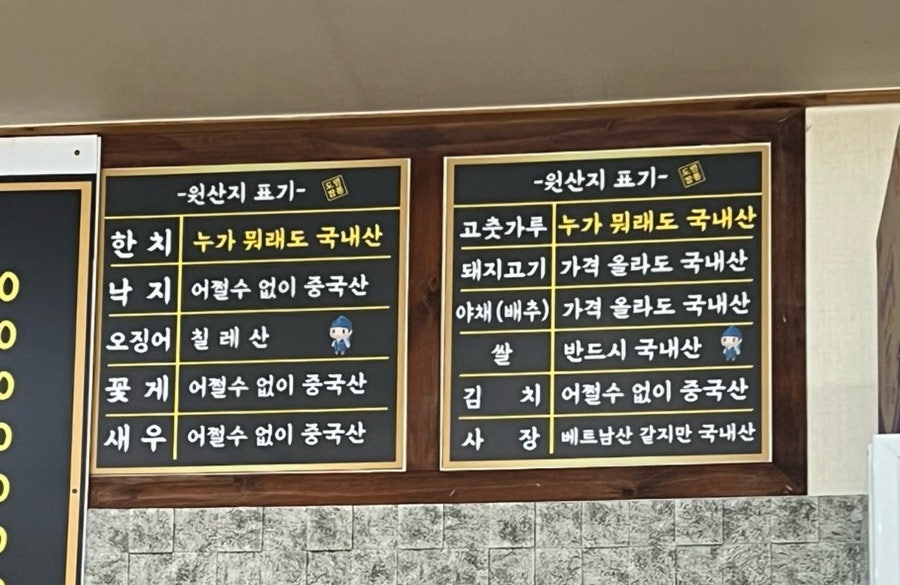 -원산지 표기-
한 치 누가 뭐래도 국내산
낙 지 어쩔수 없이 중국산
오징어 칠 레 산
꽃 게 어쩔수 없이 중국산
새 우 어쩔수 없이 중국산
-원산지 표기-
고춧가루 누가 뭐래도 국내산
돼지고기 가격 올라도 국내산
야채(배추) 가격 올라도 국내산
쌀 반드시 국내산
김 치 어쩔수 없이 중국산
사 장 베트남산 같지만 국내산
0
0
0
0
0
0
0